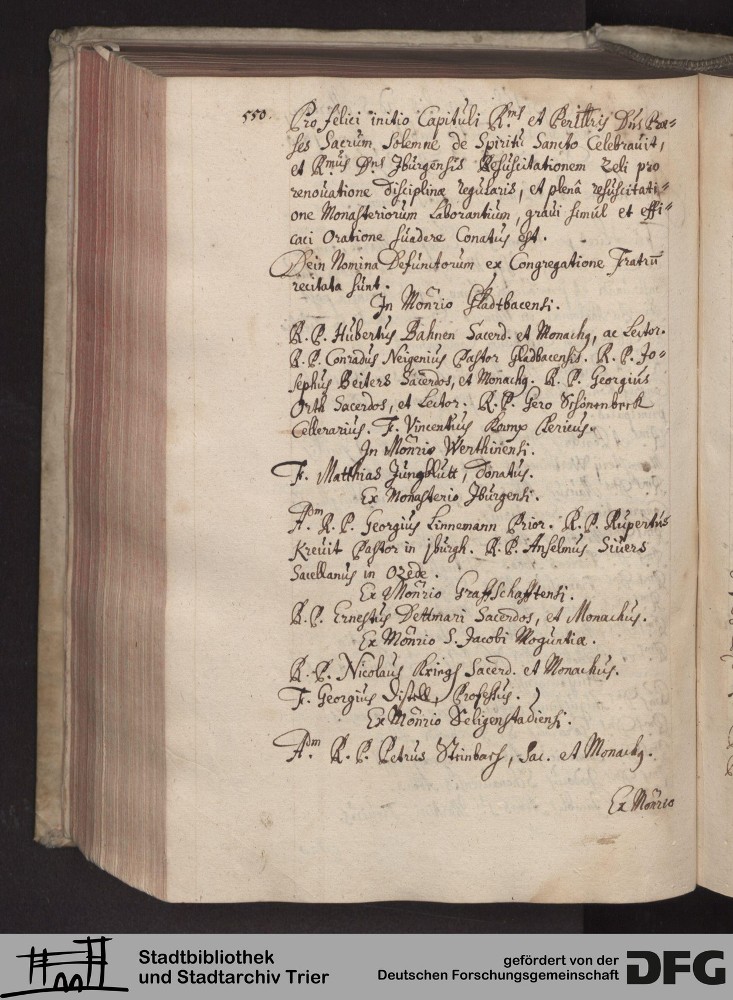 550. Pro felici initio Capituli R.ms et Perillris Dns Præ=
ses Sacrum Solemne de Spiritu Sancto Celebravit,
et R.mus Dns Jburgensis Resuscitationem Zeli pro
renovatione disciplinæ regularis, et plenâ resuscitati=
one Monasteriorum Laborantium, gravi simul et effi=
caci Oratione suadere Conatus est.
Dein Nomina Defunctorum ex Congregatione Fratrū
recitata sunt.
In Monrio Gladbacensi.
R. P. Hubertus Dahnen Sacerd. et Monachq, ac Lector.
R. P. Conradus Neigenius Pastor Gladbacensis. R. P. Jo=
sephus Beiters Sacerdos, et Monachq. R. P. Georgius
Orth Sacerdos, et Lector. R. P. Gero Schönenbeck
Cellerarius. F. Vincentius Komp Clericus.
In Monrio Werthinensi.
F. Matthias Jungblutt, Donatus.
Ex Monasterio Jburgensi.
Adm. R. P. Georgius Linnemann Prior. R. P. Rupertus
Kreuit Pastor in jburgh. R. P. Anselmus Siuers
Sacellanus in Ozede.
Ex Monrio Graffschafftensi.
R. P. Ernestus Dettmari Sacerdos, et Monachus.
Ex Monrio S. Jacobi Moguntiæ.
R. P. Nicolaus Krings Sacerd. et Monachus.
F. Georgius Distell, Professus.
Ex Monrio Seligenstadiensi.
Adm. R. P. Petrus Steinbach, Sac. et Monachq.
Ex Monrio
Stadtbibliothek
und Stadtarchiv Trier
gefördert von der
Deutschen Forschungsgemeinschaft
DFG